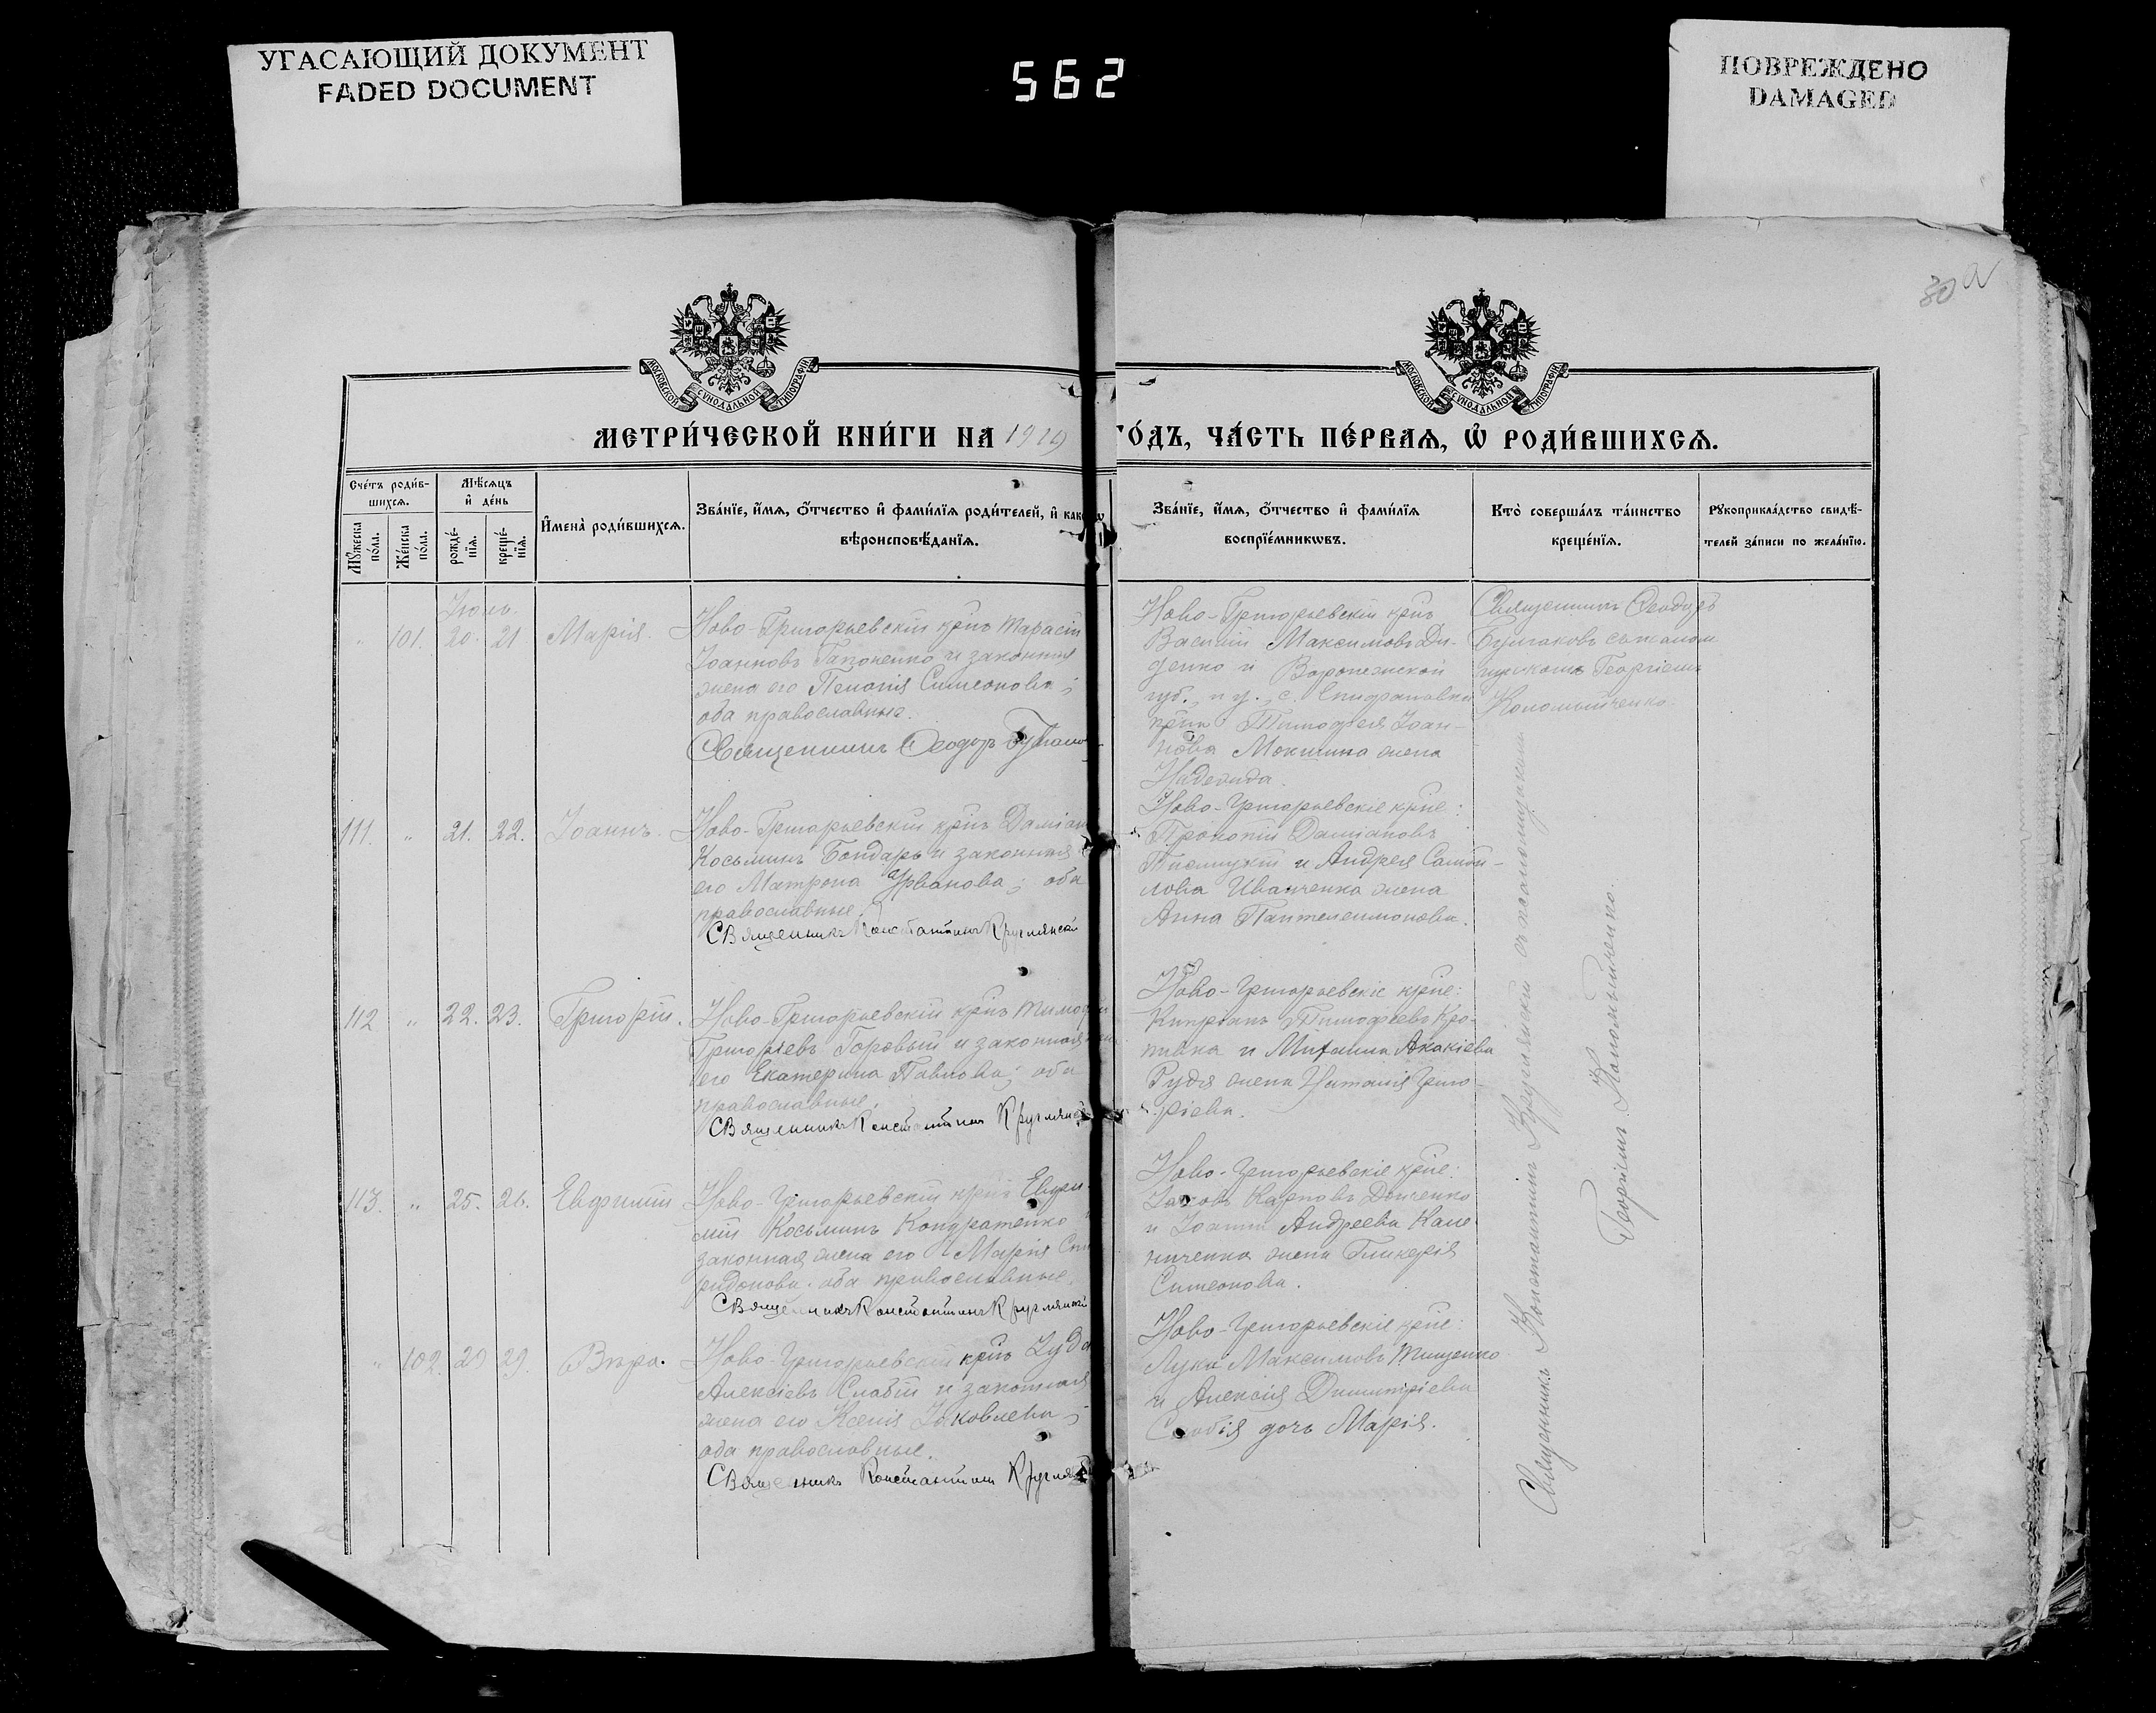 УГАСАЮЩИЙ ДОКУМЕНТ
FADED DOCUMENT
562
ПОВРЕЖДЕНО
DAMAGED
30
МОСКОВСКОЙ СѴНОДАЛЬНОЙ ТИПОГРАФІИ
МОСКОВСКОЙ СѴНОДАЛЬНОЙ ТИПОГРАФІИ
МЕТРИ́ЧЕСКОЙ КНИ́ГИ НА 19
ГО́ДЪ, ЧА́СТЬ ПЕ́РВАЯ, Ѡ҆ РОДИ́ВШИХСЯ.
Сче́тъ роди́в-
шихся.
Мꙋ́жеска по́ла.
Же́нска по́ла.
Мѣ́сяцъ
и҆ де́нь
рожде́-
нїя.
креще́-
нїя.
И҆мена̀ роди́вшихся.
Зва́нїе, и҆́мя, о҆́тчество и҆ фами́лїя роди́телей, и҆ како
вѣроисповѣ́данїя.
Зва́нїе, и҆́мя, о҆́тчество и҆ фами́лїя
воспрїе́мникѡвъ.
Кто̀ соверша́лъ та́инство
креще́нїя.
Рꙋкоприкла́дство свидѣ́-
телей за́писи по жела́нїю.
" 101. 20. 21 Марія.
Ново-Григорьевскій крнъ Тарасій
Іоанновъ Гапоненко и законная
жена его Пелагія Симеонова;
оба православные.
Священникъ Ѳеодоръ
Ново-Григорьевскій крнъ
Василій Максимовъ Ди-
денко и Воронежской
губ., и у., с.
Тимоѳея Іоан-
нова Мокшина жена
Надежда.
Священникъ Ѳеодоръ
Булгаковъ съ псалом
щикомъ Георгіемъ
Кономыйченко
111. " 21. 22. Іоаннъ.
Ново-Григорьевскій крнъ Даміан
Косьминъ Бондарь и законная
его Матрона Урванова; оба
православные.
Священникъ Константинъ Круглянскій
Ново-Григорьевскіе крне:
Прокопій Даміановъ
и Андрея Самой-
лова Иванченка жена
Анна Пантелеимонова.
112 " 22. 23. Григорій.
Ново-Григорьевскій крнъ Тимоѳей
Григоріевъ Горовый и законная
его Екатерина Павлова; оба
православные.
Священникъ Константинъ Круглянск
Ново-Григорьевскіе крне:
Кипріанъ Тимоѳеевъ Кро-
пивка и Михаила Акакіева
Рудя жена Наталія Григо-
ріева.
113. " 25. 26. Евфимій
Ново-Григорьевскій крнъ Евфи-
мій Косьминъ Кондратенко
законная жена его Марія Спи
ридонова; оба православные.
Священникъ Константинъ Круглянскій
Ново-Григорьевскіе крне:
Іаковъ Карповъ Донченко
и Іоанна Андреева Кале
ниченка жена Гликерія
Симеонова.
" 102. 29 29. Вѣра.
Ново-Григорьевскій крнъ Іуда
Алексіевъ Слабій и законная
жена его Ксенія Іаковлева;
оба православные.
Священникъ Константинъ Круглян
Ново-Григорьевскіе крне:
Лука Максимовъ Тищенко
и Алексія Димитріева
Слабія дочь Марія.
Священникъ Константинъ Круглянскій съ псаломщикомъ
Георгіемъ Кономыйченко.